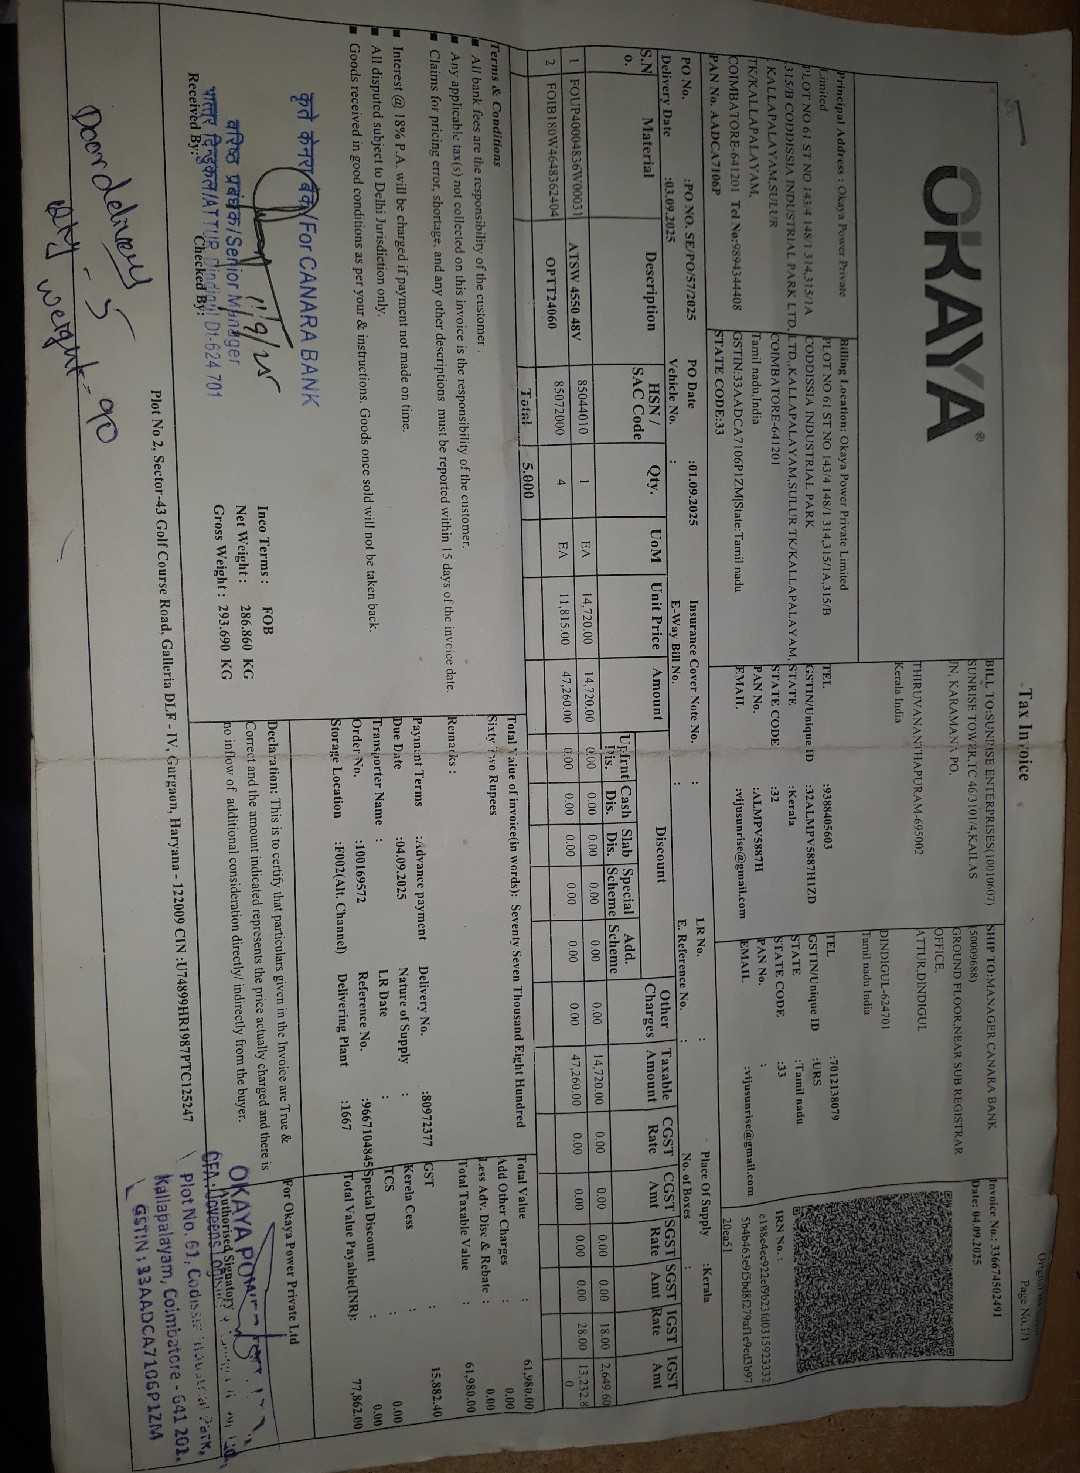 OKAYA®
Tax Invoice
Page No.1/1
Principal Address : Okaya Power Private
Limited
PLOT NO 61 ST NO 143/4 148/1 314,315/1A
315/B CODDISSIA INDUSTRIAL PARK LTD,
KALLAPALAYAM,SULUR
TK/KALLAPALAYAM,
COIMBATORE-641201 Tel No:9894344408
PAN No. AADCA7106P
Billing Location: Okaya Power Private Limited
PLOT NO 61 ST NO 143/4 148/1 314,315/1A,315/B
CODDISSIA INDUSTRIAL PARK
LTD,KALLAPALAYAM,SULUR TK/KALLAPALAYAM,
COIMBATORE-641201
Tamil nadu,India
GSTIN:33AADCA7106P1ZM|State:Tamil nadu
STATE CODE:33
BILL TO:SUNRISE ENTERPRISES(10010607)
SUNRISE TOWER,TC 46/3101/4,KAILAS
JN, KARAMANA PO,
THIRUVANANTHAPURAM-695002
Kerala India
TEL :9388405603
GSTIN/Unique ID :32ALMPV5887H1ZD
STATE :Kerala
STATE CODE :32
PAN No. :ALMPV5887H
EMAIL :vijusunrise@gmail.com
SHIP TO:MANAGER CANARA BANK
(50009688)
GROUND FLOOR,NEAR SUB REGISTRAR
OFFICE,
ATTUR,DINDIGUL
DINDIGUL-624701
Tamil nadu India
TEL :7012138079
GSTIN/Unique ID :URS
STATE :Tamil nadu
STATE CODE :33
PAN No. :
EMAIL :vijusunrise@gmail.com
Invoice No.: 336674502491
Date: 04.09.2025
IRN No. :
PO No. :PO NO. SE/PO/57/2025 PO Date :01.09.2025 Insurance Cover Note No. : LR No. : Place Of Supply :Kerala
Delivery Date :03.09.2025 Vehicle No. : E-Way Bill No. : E. Reference No. : No. of Boxes :
S.No. Material Description HSN / SAC Code Qty. UoM Unit Price Amount Discount Upfrnt Dis. Cash Dis. Slab Dis. Special Scheme Add. Scheme Other Charges Taxable Amount CGST Rate CGST Amt SGST Rate SGST Amt IGST Rate IGST Amt
1 FOUP40004836W00031 ATSW 4550 48V 85044010 1 EA 14,720.00 14,720.00 0.00 0.00 0.00 0.00 0.00 0.00 14,720.00 0.00 0.00 0.00 0.00 18.00 2,649.60
2 FOIB180W4648362404 OPTT24060 85072000 4 EA 11,815.00 47,260.00 0.00 0.00 0.00 0.00 0.00 0.00 47,260.00 0.00 0.00 0.00 0.00 28.00 13,232.80
Total 5.000
Terms & Conditions
All bank fees are the responsibility of the customer .
Any applicable tax(s) not collected on this invoice is the responsibility of the customer.
Claims for pricing error, shortage, and any other descriptions must be reported within 15 days of the invoice date.
Interest @ 18% P.A. will be charged if payment not made on time.
All disputed subject to Delhi Jurisdiction only.
Goods received in good conditions as per your & instructions. Goods once sold will not be taken back.
Total Value of invoice(in words): Seventy Seven Thousand Eight Hundred
Sixty Two Rupees
Remarks :
Payment Terms :Advance payment Delivery No. :80972377
Due Date :04.09.2025 Nature of Supply :
Transporter Name : LR Date :
Order No. :100169572 Reference No. :9667104845
Storage Location :F002(Alt. Channel) Delivering Plant :1667
Total Value : 61,980.00
Add Other Charges : 0.00
Less Adv. Disc & Rebate : 0.00
Total Taxable Value : 61,980.00
GST : 15,882.40
Kerela Cess :
TCS : 0.00
Special Discount : 0.00
Total Value Payable(INR): 77,862.00
कृते केनरा बैंक/For CANARA BANK
11/9/25
वरिष्ठ प्रबंधक/Senior Manager
ATTUR Dindigul Dt-624 701
Received By: Checked By:
Inco Terms : FOB
Net Weight : 286.860 KG
Gross Weight : 293.690 KG
Declaration: This is to certify that particulars given in the Invoice are True &
Correct and the amount indicated represents the price actually charged and there is
no inflow of additional consideration directly/ indirectly from the buyer.
For Okaya Power Private Ltd
Authorised Signatory
OKAYA POWER
Plot No. 61, Codissia Industrial Park,
Kallapalayam, Coimbatore - 641 201.
GSTIN : 33AADCA7106P1ZM
Plot No 2, Sector-43 Golf Course Road, Galleria DLF - IV, Gurgaon, Haryana - 122009 CIN :U74899HR1987PTC125247
Door delivery
Qty - 5
weight - 90